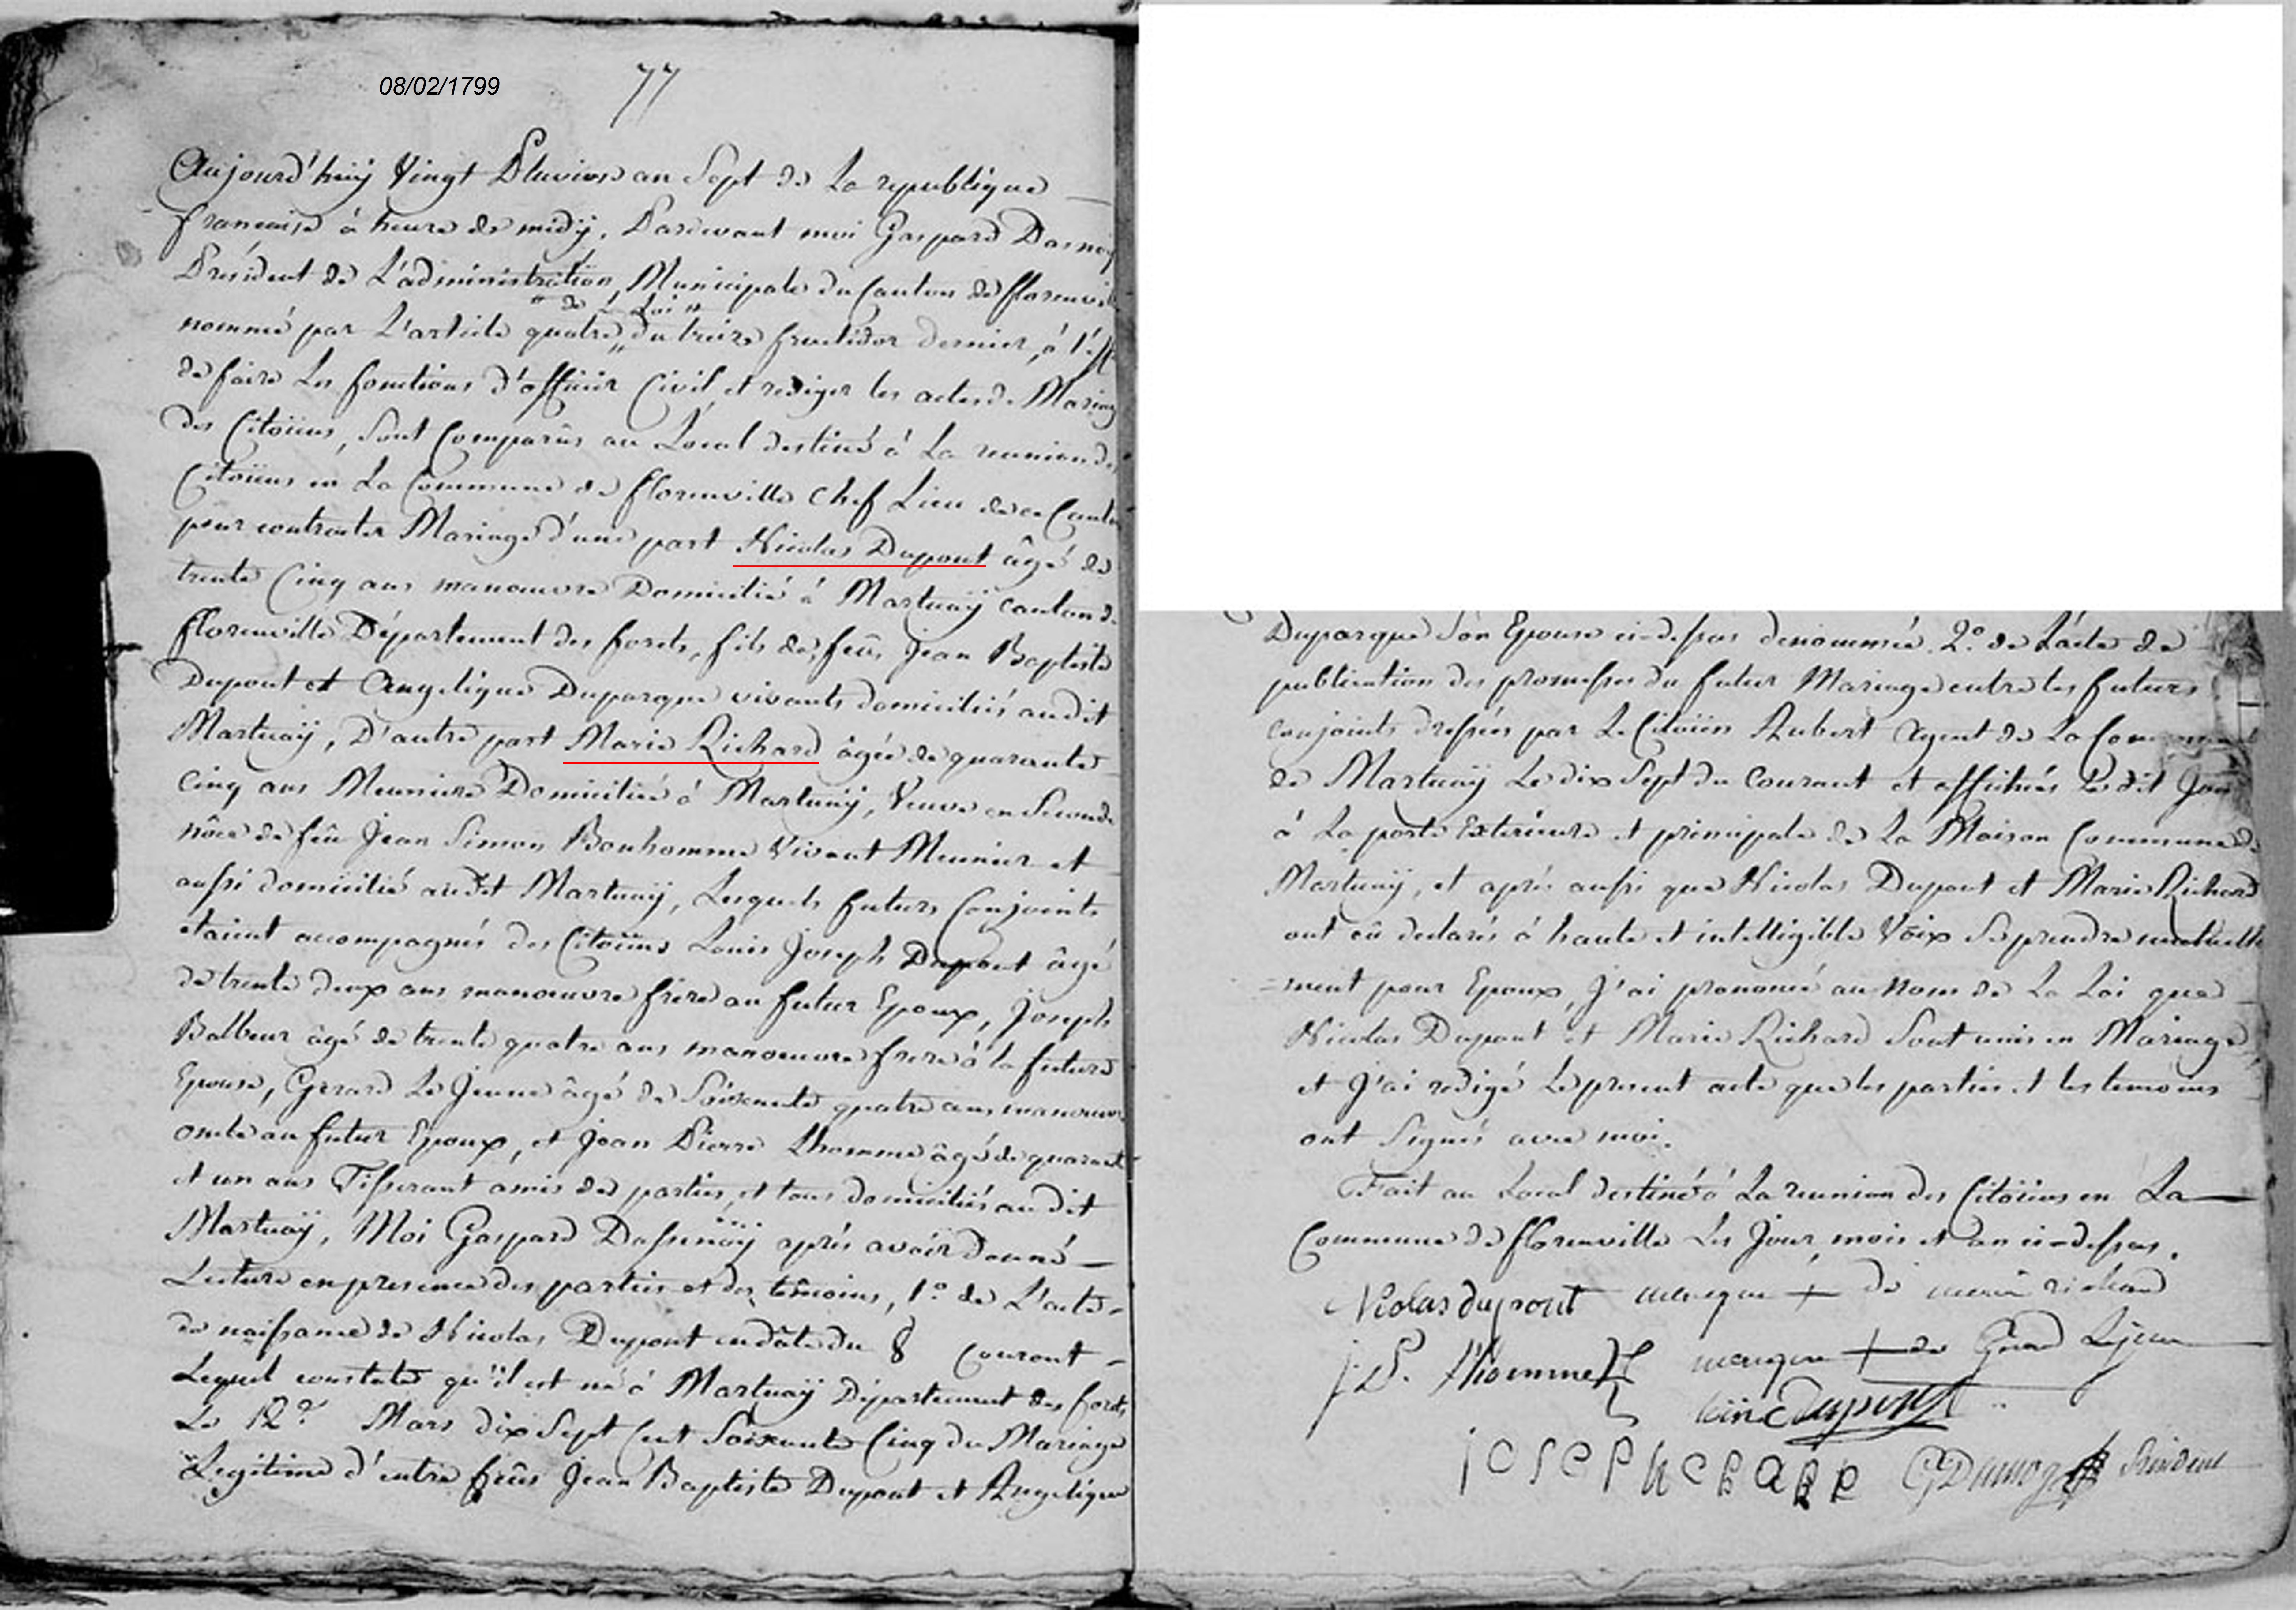 08/02/1799
77
Aujourd'huÿ Vingt Pluviose an Sept de La republique
francaise à heure de midÿ, Pardevant moi Gaspard Dasnoÿ
Président de L'administration Municipale du Canton de florenville
" de la Loi "
nommé par L'article quatre " du treize fructidor dernier, à l'eff
de faire Les fonctions d'officier Civil, et rediger les actes de Mariag
des Citoiens, Sont Comparûs au Local destiné à La reunion des
Citoiens en La Commune de florenville Chef Lieu de ce Canton
pour contracter Mariage d'une part Nicolas Dupont âgé de
trente Cinq ans manoeuvre Domicilié à Martuaÿ canton de
florenville Département des forets, fils de feûs Jean Baptiste
Dupont et Angelique Duparque vivants domiciliés audit
Martuaÿ, D'autre part Marie Richard âgée de quarante
Cinq ans Meuniere Domiciliée à Martuaÿ, Veuve en Seconde
nôce de feû Jean Simon Bonhomme Vivant Meunier et
aussi domicilié audit Martuaÿ, Lesquels futurs Conjoints
etaient accompagnés des Citoiens Louis Joseph Dupont âgé
de trente deux ans manoeuvre frere au futur Epoux, Joseph
Balbeur âgé de trente quatre ans manoeuvre frere à la future
Epouse, Gerard Le Jeune âgé de Soixante quatre ans manoeuvre
oncle au futur Epoux, et Jean Pierre Lhomme âgé de quarante
et un ans Tisserant amis des parties, et tous domiciliés audit
Martuaÿ, Moi Gaspard Dassenoÿ après avoir donné
Lecture en presence des parties et des témoins, 1.º de L'acte
de naissance de Nicolas Dupont en dâte du 8 Courant
Lequel constate qu'il est né à Martuaÿ Département des forets
Le 12 Mars dix Sept Cent Soixante Cinq du Mariage
Legitime d'entre feûs Jean Baptiste Dupont et Angelique
Duparque Son Epouse ci-dessus denommée 2.º de L'acte de
publication des promesses du futur Mariage entre les futurs
conjoints dressées par Le Citoien Aubert Agent de La Commune
de Martuaÿ Le dix Sept du Courant et affichées le dit Jour
à La porte Exterieure et principale de La Maison Commune de
Martuaÿ, et après aussi que Nicolas Dupont et Marie Richard
ont eû declarés à haute et intelligible Voix Se prendre mutuelle
=ment pour Epoux, J'ai prononcé au Nom de La Loi que
Nicolas Dupont et Marie Richard Sont unis en Mariage
et J'ai redigé Le present acte que les parties et les temoins
ont Signés avec moi.
Fait au Local destiné à La reunion des Citoiens en La
Commune de florenville Les Jour, mois et an ci-dessus.
Nicolas dupont marque + de marie richard
J.P. Lhomme marque + de Gerard Lejeune
dupont
josephe BaBe GDasnoy President